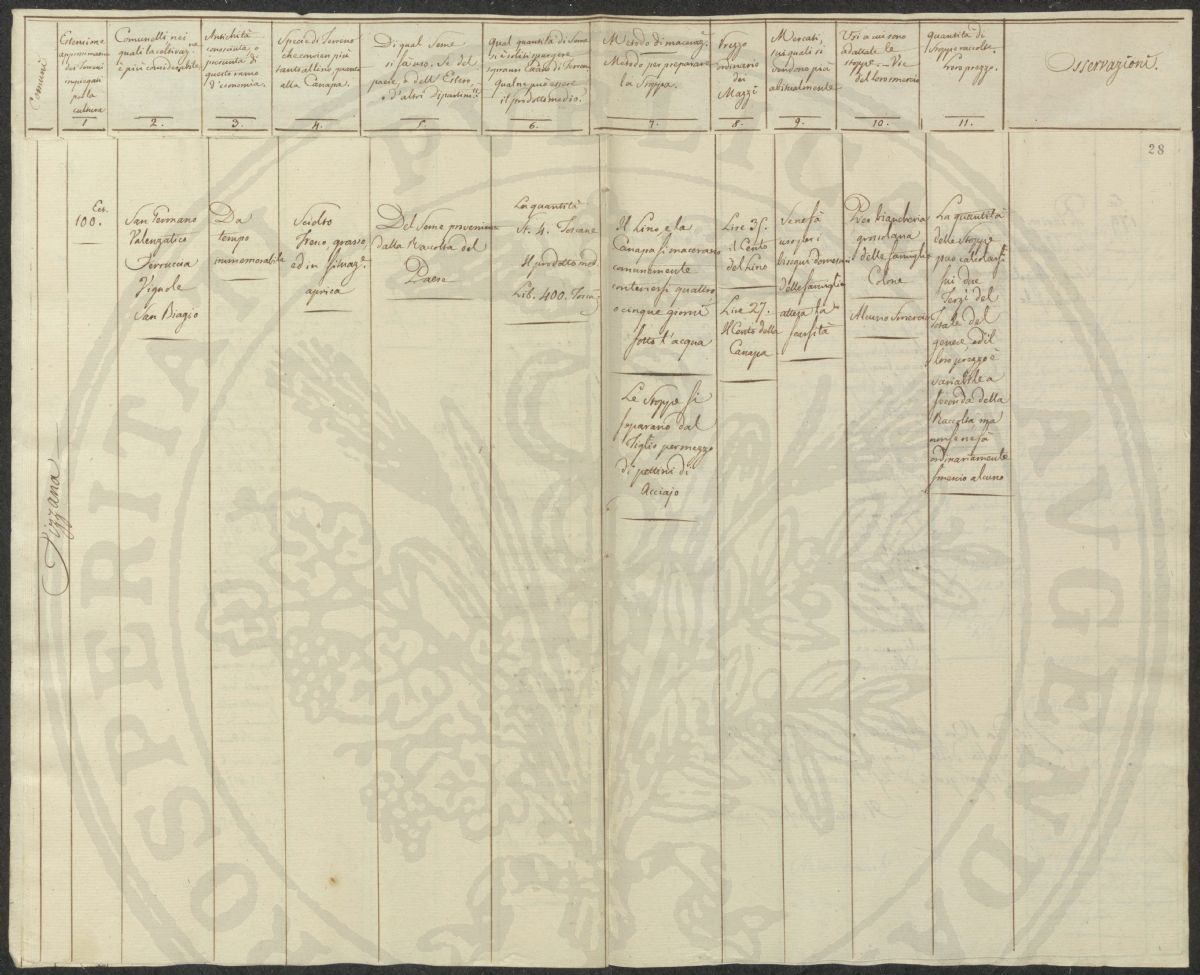 Comuni
Estensione
approssimativa
dei Terreni
impiegati
per la
cultura
1
Comunelli nei
quali la coltivaz.ne
è più considerabile
2.
Antichità
conosciuta, o
presunta di
questo ramo
d'economia.
3.
Specie di Terreno
che convien più
tanto al Lino, quanto
alla Canapa.
4.
Di qual Seme
si fà uso. Se del
paese, o dell'Estero,
o d'altri Dipartim.ti
5.
Qual quantità di Seme
si è soliti spargere
sopra un dato di Terreno
qual ne può essere
il prodotto medio.
6.
Metodo di maceraz.
Metodo per preparare
la Stoppa.
7.
Prezzo
ordinario
dei
Mazzi
8.
Mercati,
sui quali si
vendono più
abitualmente
9.
Usi a cui sono
adattate le
stoppe — Vie
del loro smercio
10.
Quantità di
Stoppe raccolte.
Loro prezzo.
11.
Osservazioni.
28
Tizzana
Ect.
100.
San Germano
Valenzatico
Ferruccia
Vignole
San Biagio
Da
tempo
immemorabile
Sciolto
Fresco grasso
ed in situaz.e
aprica
Del Seme proveniente
dalla Raccolta del
Paese
La quantità
St. 4. Toscane
Il prodotto med.
Lib. 400. Tosc.
Il Lino, e la
Canapa si macerano
comunemente
contenersi quattro
o cinque giorni
sotto l'acqua
Le Stoppe si
separano dal
Tiglio per mezzo
di pettini di
Acciajo
Lire 35.
il Cento
del Lino
Lire 27.
Il Cento della
Canapa
Se ne fà
uso per i
bisogni domestici
delle famiglie
attesa la
scarsità
Per biancheria
grossolana
delle famiglie
Colone
Alcuno Smercio
La quantità
delle Stoppe
può calcolarsi
sui due
Terzi del
Totale del
genere ed il
loro prezzo è
variabile a
seconda della
Raccolta ma
non se ne fà
ordinariamente
smercio alcuno